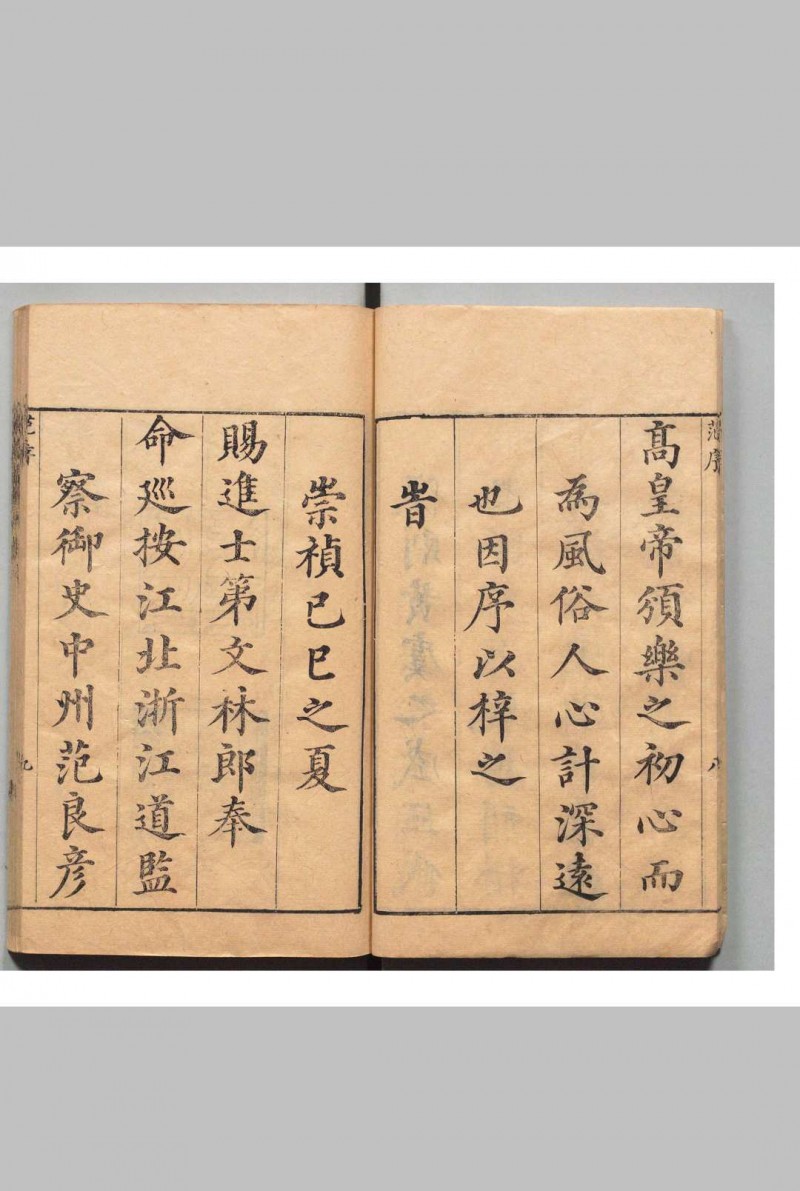 范序
八
高皇帝頒樂之初心而
為風俗人心計深遠
也因序以梓之
旹
崇禎己巳之夏
賜進士第文林郎奉
命巡按江北浙江道監
察御史中州范良彦
范序
九